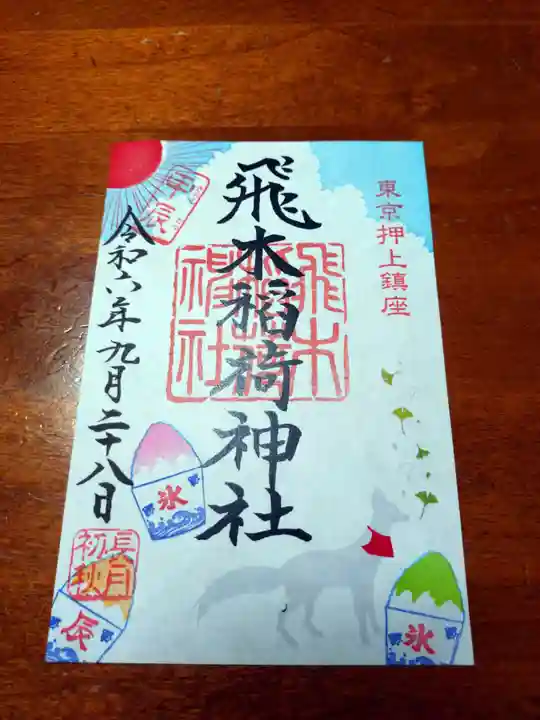 東京押上鎮座
飛木稲荷神社
飛木稲荷神社
甲辰
令和六年九月二十八日
長月
初秋
氷
氷